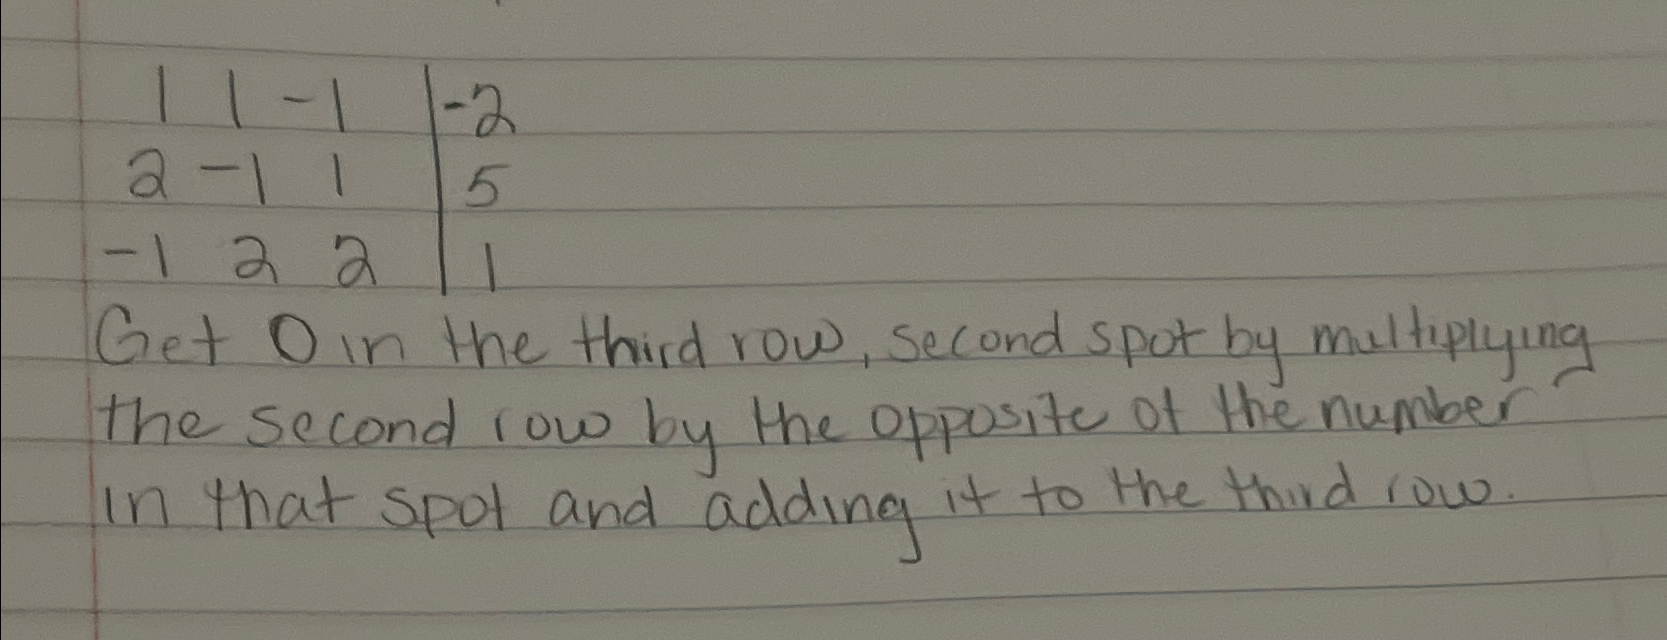 1 1 -1 | -2
2 -1 1 | 5
-1 2 2 | 1
Get 0 in the third row, second spot by multiplying
the second row by the opposite of the number
in that spot and adding it to the third row.